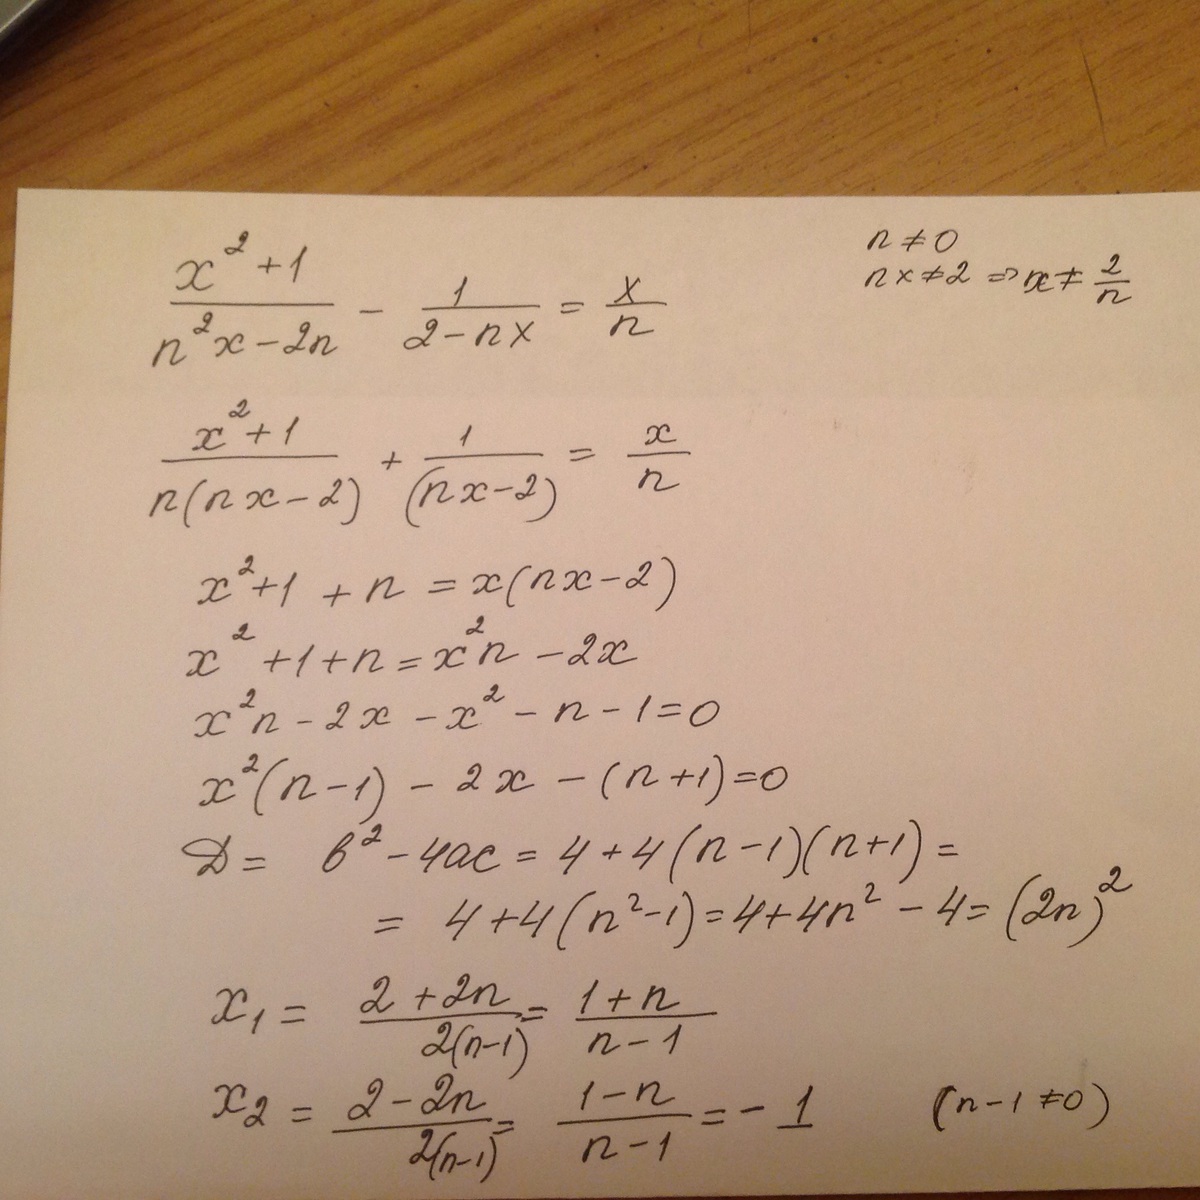 (x²+1)/(n²x-2n) - 1/(2-nx) = x/n
n≠0
nx≠2 => x≠2/n
(x²+1)/(n(nx-2)) + 1/(nx-2) = x/n
x²+1+n=x(nx-2)
x²+1+n=x²n-2x
x²n-2x-x²-n-1=0
x²(n-1)-2x-(n+1)=0
D= b²-4ac=4+4(n-1)(n+1)=
= 4+4(n²-1)=4+4n²-4=(2n)²
x₁= (2+2n)/(2(n-1)) = (1+n)/(n-1)
x₂= (2-2n)/(2(n-1)) = (1-n)/(n-1) =-1 (n-1≠0)